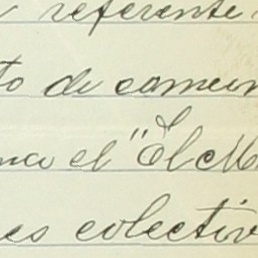 referente
to de comun
na el "El M
es colectiv